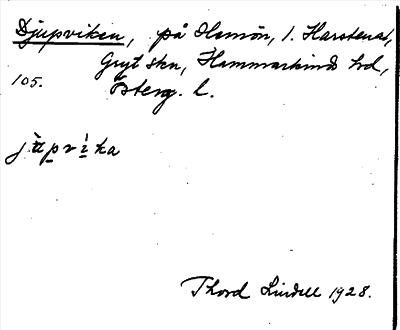 Djupviken, på Hemön, 1. Harstena,
Gryt skn, Hammarkinds hd,
105. Österg. l.
jùpvìka
Thord Lindell 1928.